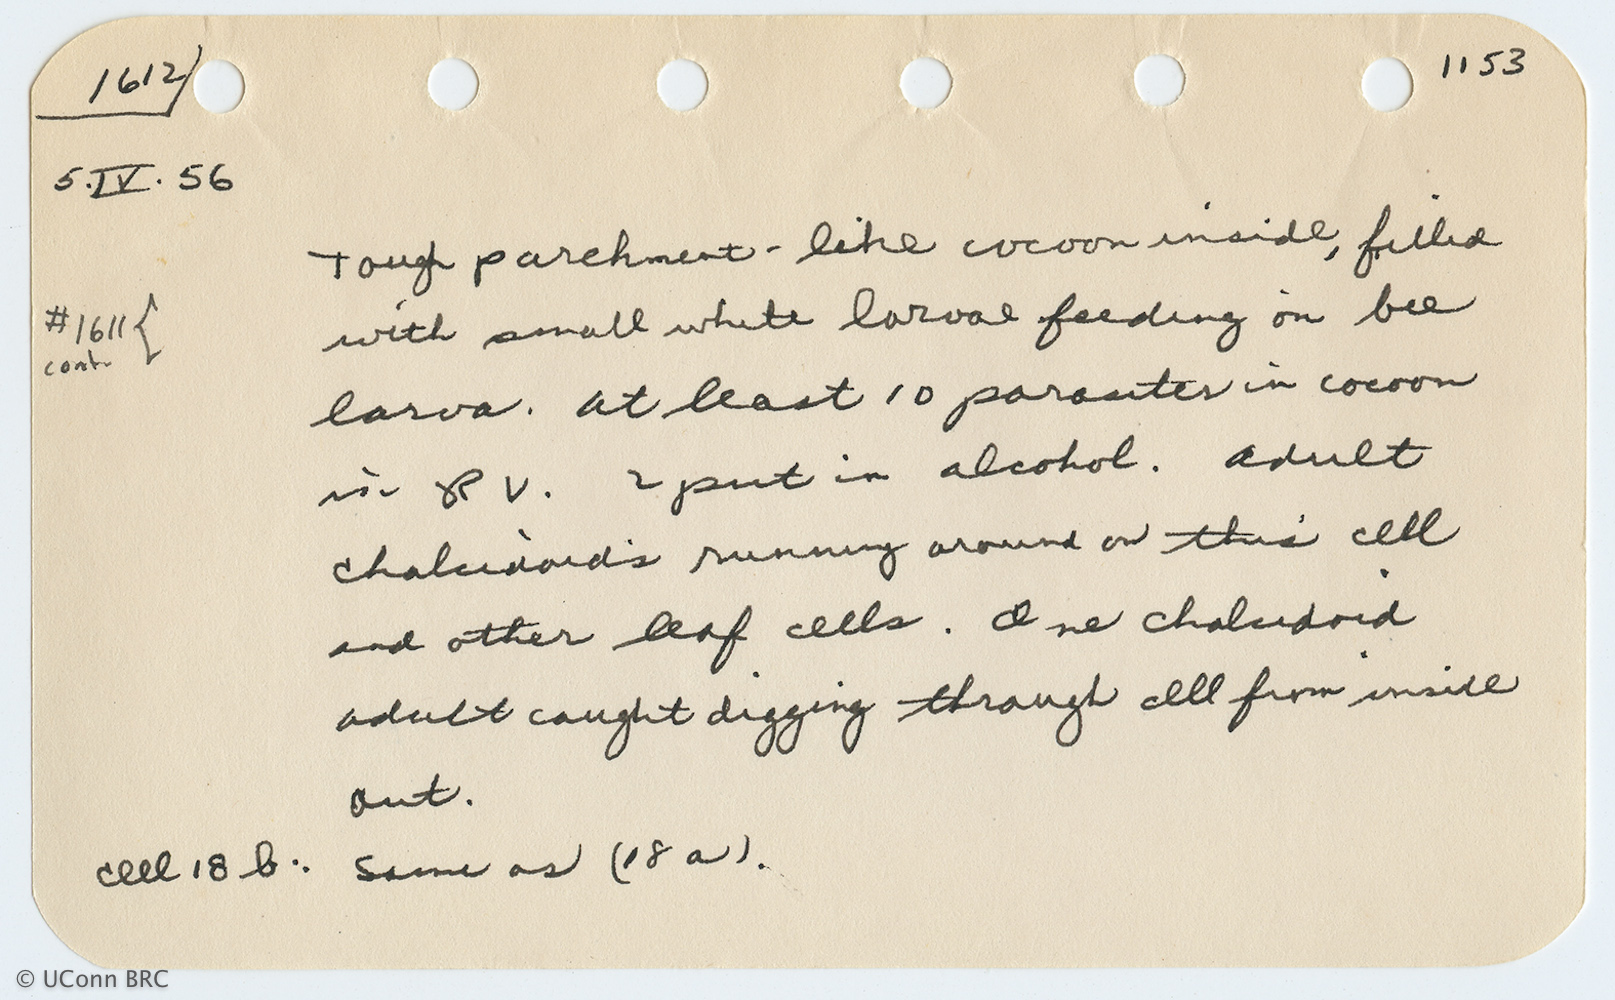 1612
1153
5.IV.56
#1611 cont.
Tough parchment-like cocoon inside, filled
with small white larvae feeding on bee
larva. At least 10 parasites in cocoon
in V. 2 put in alcohol. Adult
chalcidoids running around on this cell
and other leaf cells. One chalcidoid
adult caught digging through cell from inside
out.
cell 18 b. Same as (18 a).
© UConn BRC